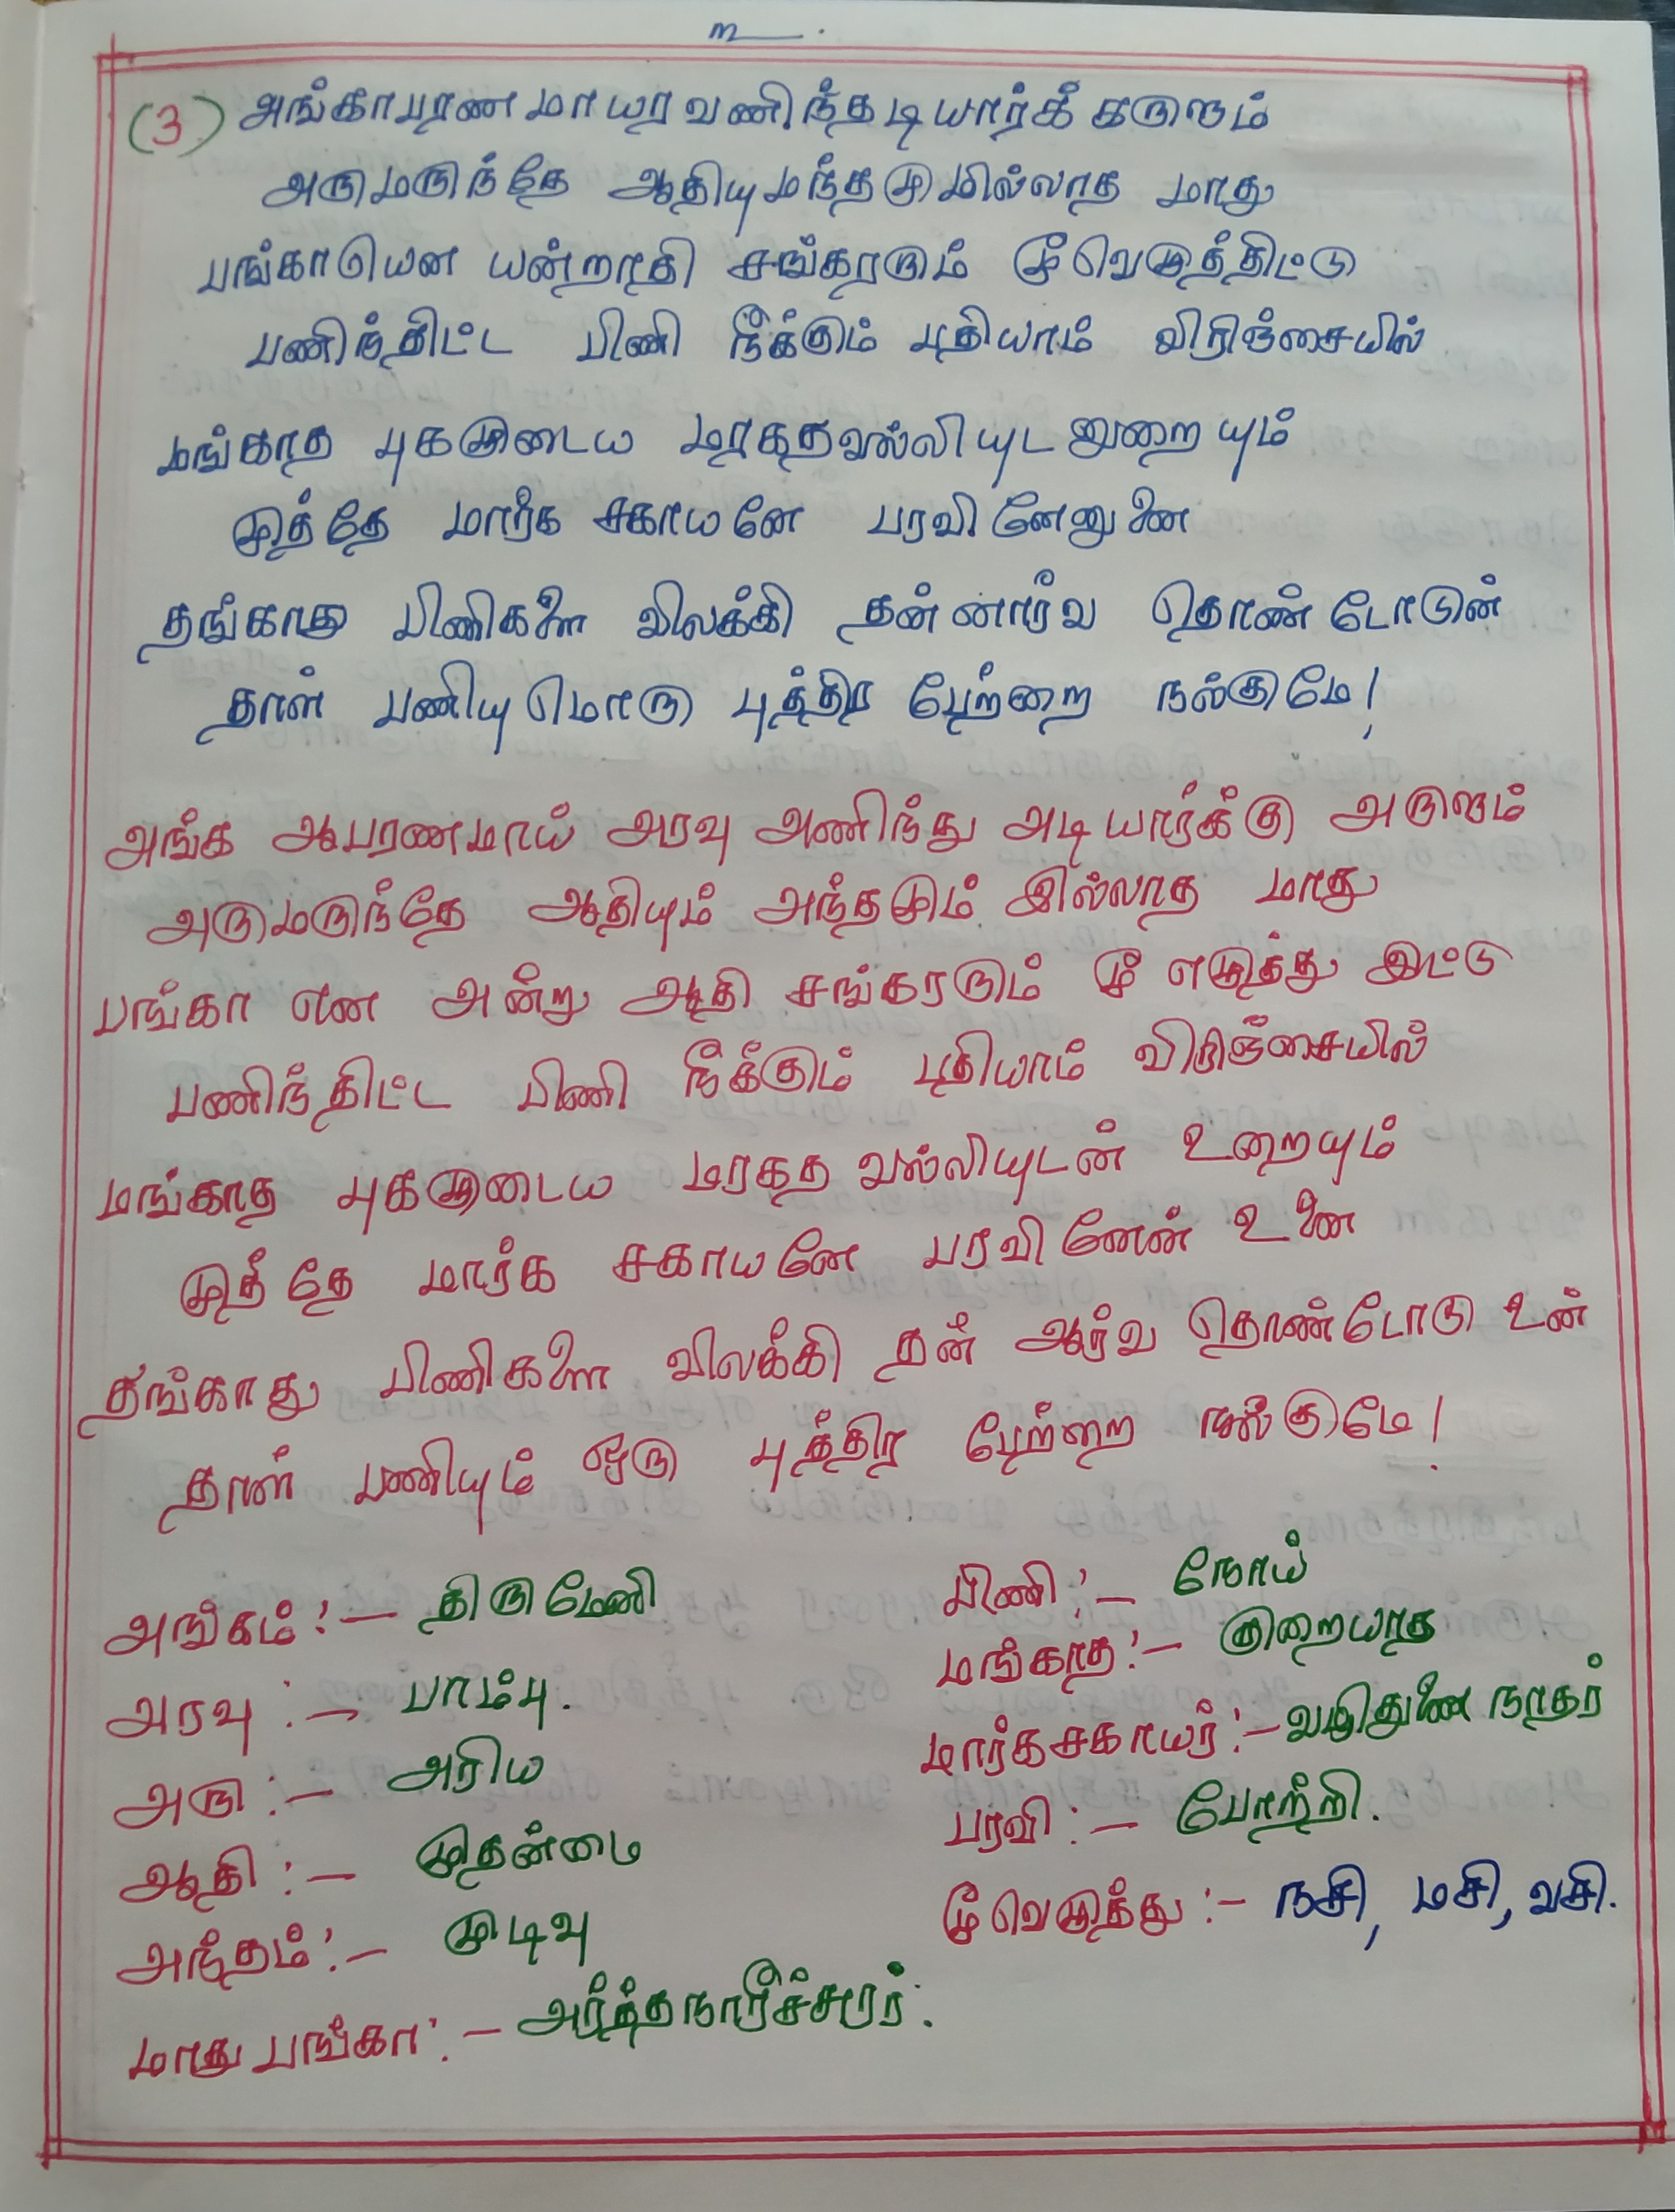 (3) அங்காபரண மாயரவணிந்தடியார்க் கருளும்
அருமருந்தே ஆதியுமந்தமுமில்லாத மாது
பங்காயென யன்றாதி சங்கரரும் மூவெழுத்திட்டு
பணிந்திட்ட பிணி நீக்கும் பதியாம் விரிஞ்சையில்
மங்காத புகழுடைய மரகதவல்லியுட னுறையும்
முத்தே மார்க சகாயனே பரவினேனுனை
தங்காது பிணிகளை விலக்கி தன்னார்வ தொண்டோடுன்
தாள் பணியுமொரு புத்திர பேற்றை நல்குமே!
அங்க ஆபரணமாய் அரவு அணிந்து அடியார்க்கு அருளும்
அருமருந்தே ஆதியும் அந்தமும் இல்லாத மாது
பங்கா என அன்று ஆதி சங்கரரும் மூ எழுத்து இட்டு
பணிந்திட்ட பிணி நீக்கும் பதியாம் விரிஞ்சையில்
மங்காத புகழுடைய மரகத வல்லியுடன் உறையும்
முத்தே மார்க சகாயனே பரவினேன் உனை
தங்காது பிணிகளை விலக்கி தன் ஆர்வ தொண்டோடு உன்
தாள் பணியும் ஒரு புத்திர பேற்றை நல்குமே!
அங்கம் :- திருமேனி
அரவு :- பாம்பு.
அரு :- அரிய
ஆதி :- முதன்மை
அந்தம் :- முடிவு
மாது பங்கா :- அர்த்தநாரீச்சுரர்.
பிணி :- நோய்
மங்காத :- குறையாத
மார்கசகாயர் :- வழிதுணை நாதர்
பரவி :- போற்றி.
மூவெழுத்து :- நசி, மசி, வசி.